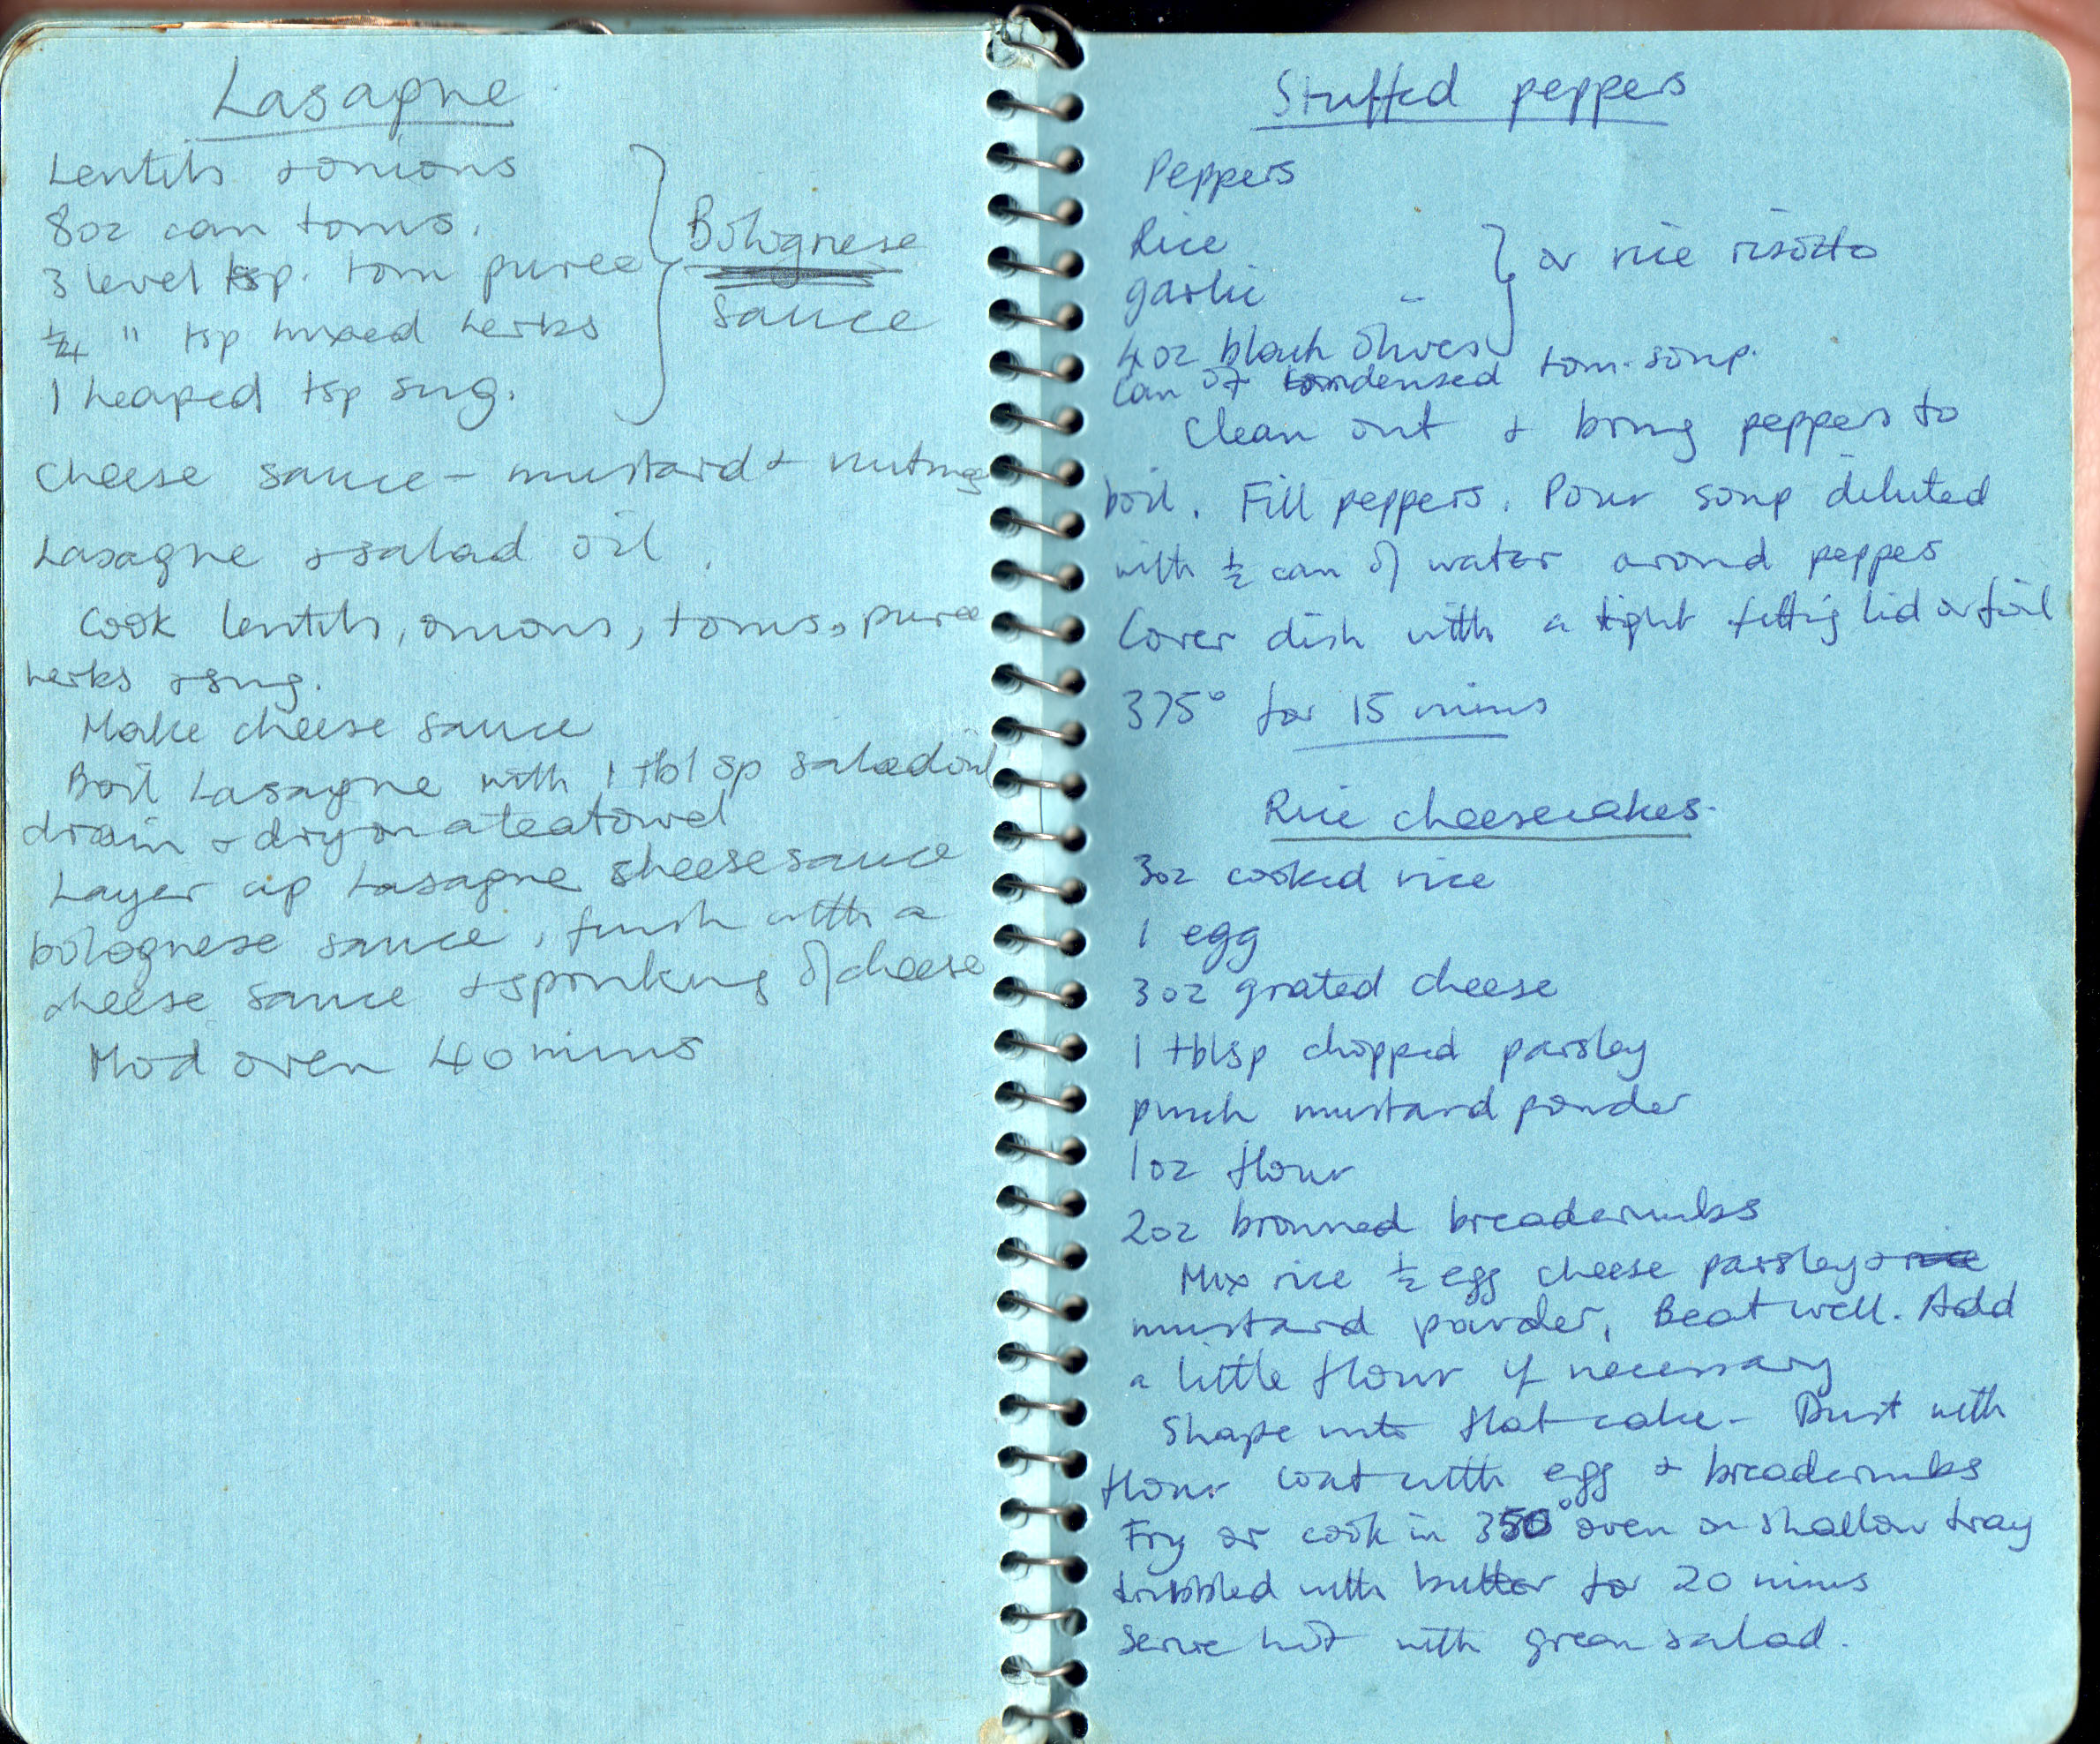 Lasagne
Lentils + onions
8oz can toms.
3 level tsp. tom puree
1/4 " tsp mixed herbs
1 heaped tsp sug.
Bolognese
sauce
Cheese sauce - mustard + nutmeg
Lasagne + salad oil.
Cook lentils, onions, toms, puree
herbs + sug.
Make cheese sauce
Boil Lasagne with 1 tbl sp salad oil
drain + dry on a teatowel
Layer up Lasagne cheese sauce
bolognese sauce, finish with a
cheese sauce + sprinkling of cheese
Mod oven 40 mins
Stuffed peppers
Peppers
Rice
garlic
4 oz black olives
} or rice risotto
Can of condensed tom. soup.
Clean out + bring peppers to
boil. Fill peppers. Pour soup diluted
with 1/2 can of water around peppers
Cover dish with a tight fittig lid or foil
375° for 15 mins
Rice cheesecakes.
3oz cooked rice
1 egg
3 oz grated cheese
1 tblsp chopped parsley
pinch mustard powder
1oz flour
2oz browned breadcrumbs
Mix rice 1/2 egg cheese parsley + rice
mustard powder, Beat well. Add
a little flour if necessary
Shape into flat cake - Dust with
flour coat with egg + breadcrumbs
Fry or cook in 350° oven on shallow tray
dribbled with butter for 20 mins
Serve hot with green salad.